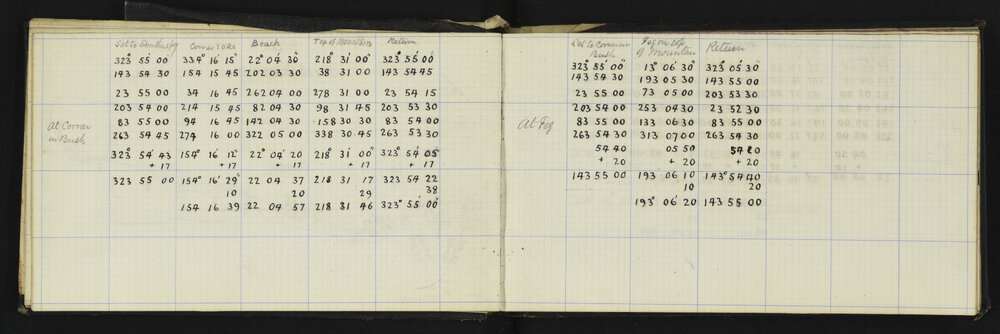 Set to Corner E & Ro Beach Top of Mountain Return
323° 55' 00" 334° 16' 15" 22° 04' 30" 218° 31' 00" 323° 55' 00"
143 54 30 154 15 45 202 03 30 38 31 00 143 54 45
23 55 00 34 16 45 262 04 00 278 31 00 23 54 15
203 54 00 214 15 45 82 04 30 98 31 45 203 53 30
83 55 00 94 16 45 142 04 30 158 30 30 83 54 00
At Corner in Bush
263 54 45 274 16 00 322 05 00 338 30 45 263 53 30
323° 54' 43 154° 16' 12" 22° 04' 20 218° 31' 00" 323° 54' 05"
+ 17 + 17 + 17 + 17 + 17
323 55 00 154° 16' 29" 22 04 37 218 31 17 323 54 22
10 20 29 38
154 16 39 22 04 57 218 31 46 323° 55' 00"
Set to Corner in Bush Peg on top of Mountain Return
323° 55' 00" 13° 06' 30" 323° 05' 30"
143 54 30 193 05 30 143 55 00
23 55 00 73 05 00 203 53 30
203 54 00 253 04 30 23 52 30
At Peg
83 55 00 133 06 30 83 55 00
263 54 30 313 07 00 263 54 30
54 40 05 50 54 20
+ 20 + 20 + 20
143 55 00 193° 06' 10 143° 54' 40
10 20
193° 06' 20 143 55 00